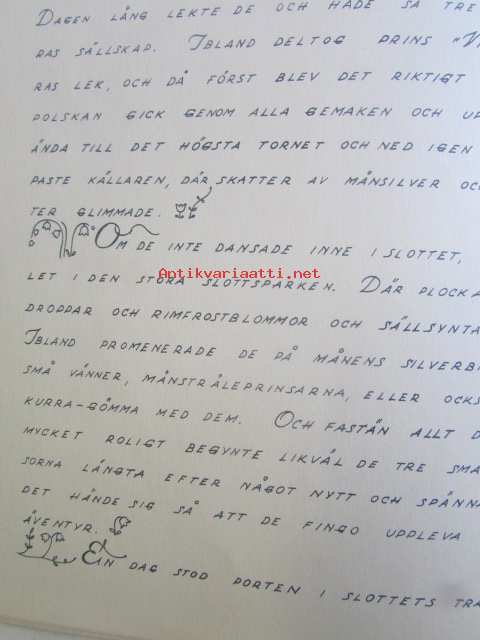 DAGEN LÅNG LEKTE DE OCH HADE SÅ TRE
RAS SÄLLSKAP. IBLAND DELTOG PRINS
RAS LEK, OCH DÅ FÖRST BLEV DET RIKTIGT
POLSKAN GICK GENOM ALLA GEMAKEN OCH UP
ÄNDA TILL DET HÖGSTA TORNET OCH NED IGEN
PASTE KÄLLAREN, DÄR SKATTER AV MÅNSILVER OC
TER GLIMMADE.
OM DE INTE DANSADE INNE I SLOTTET,
Antikvariaatti.net
LET I DEN STORA SLOTTSPARKEN. DÄR PLOCKA
DROPPAR OCH RIMFROSTBLOMMOR OCH SÄLLSYNTA
IBLAND PROMENERADE DE PÅ MÅNENS SILVERB
SMÅ VÄNNER, MÅNSTRÅLEPRINSARNA, ELLER OCKS
KURRA-GÖMMA MED DEM. OCH FASTÄN ALLT D
MYCKET ROLIGT BEGYNTE LIKVÄL DE TRE SMÅ
SORNA LÄNGTA EFTER NÅGOT NYTT OCH SPÄNNA
DET HÄNDE SIG SÅ ATT DE FINGO UPPLEVA
ÄVENTYR.
EN DAG STOD PORTEN I SLOTTETS TRÄ